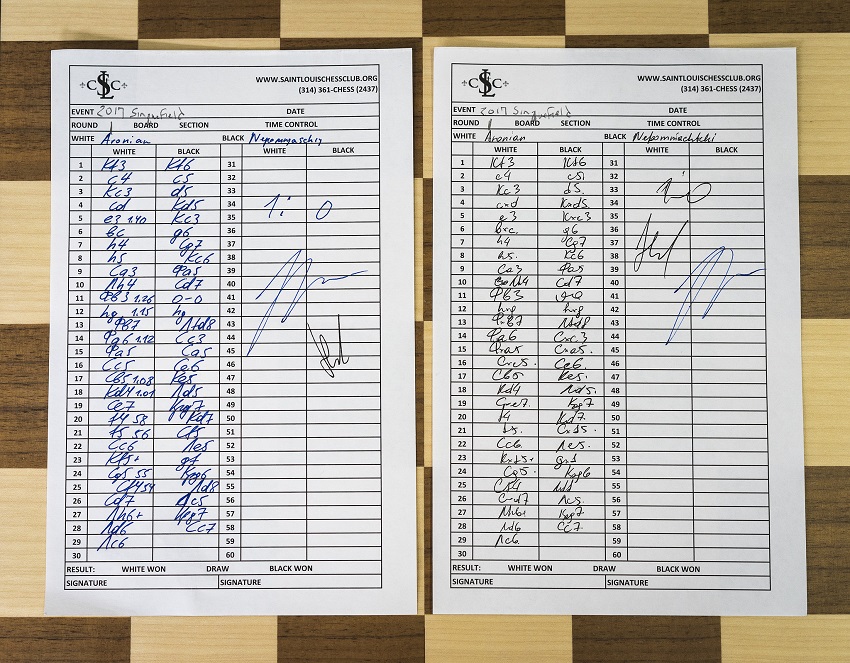 WWW.SAINTLOUISCHESSCLUB.ORG
(314) 361-CHESS (2437)
EVENT 2017 Sinquefield DATE
ROUND 1 BOARD SECTION TIME CONTROL
WHITE Aronian BLACK
WHITE BLACK WHITE BLACK
1 Кf3 Кf6 31
2 c4 c5 32
3 Кc3 d5 33
4 cd Кd5 34 1 : 0
5 e3 1.40 Кc3 35
6 bc g6 36
7 h4 Cg7 37
8 h5 Кc6 38
9 Ca3 Фa5 39
10 Лh4 Cd7 40
11 Фb3 1.26 0-0 41
12 hg 1.15 hg 42
13 Фb7 Лfd8 43
14 Фa6 1.12 Cc3 44
15 Фa5 Ca5 45
16 Cc5 Ce6 46
17 Cb5 1.08 Кe5 47
18 Кd4 1.01 Лd5 48
19 Ce7 Крg7 49
20 f4 58 Кd7 50
21 f5 56 Cf5 51
22 Cc6 Лe5 52
23 Кf5+ gf 53
24 Cg5 55 Крg6 54
25 Cf4 54 Лd8 55
26 Cd7 Лc5 56
27 Лh6+ Крg7 57
28 Лd6 Cc7 58
29 Лc6 59
30 60
RESULT: WHITE WON DRAW BLACK WON
SIGNATURE SIGNATURE
WWW.SAINTLOUISCHESSCLUB.ORG
(314) 361-CHESS (2437)
EVENT 2017 Sinquefield DATE
ROUND 1 BOARD SECTION TIME CONTROL
WHITE Aronian BLACK Nepomniachtchi
WHITE BLACK WHITE BLACK
1 Кf3 Кf6 31
2 c4 c5 32
3 Кc3 d5. 33
4 cxd Кxd5. 34
5 e3 Кxc3 35
6 bxc. g6 36
7 h4 Cg7 37
8 h5. Кc6 38
9 Ca3 Фa5 39
10 Лh4 Cd7 40
11 Фb3 0-0 41
12 hxg hxg 42
13 Фxb7 Лfd8 43
14 Фa6 Cxc3 44
15 Фxa5 Cxa5. 45
16 Cxc5. Ce6. 46
17 Cb5 Кe5. 47
18 Кd4 Лd5. 48
19 Cxe7. Крg7 49
20 f4 Кd7. 50
21 f5. Cxf5. 51
22 Cc6 Лe5. 52
23 Кxf5+ gxf 53
24 Cg5. Крg6 54
25 Cf4 Лd8 55
26 Cxd7 Лc5. 56
27 Лh6+ Крg7 57
28 Лd6 Cc7 58
29 Лc6 59
30 60
RESULT: WHITE WON DRAW BLACK WON
SIGNATURE SIGNATURE